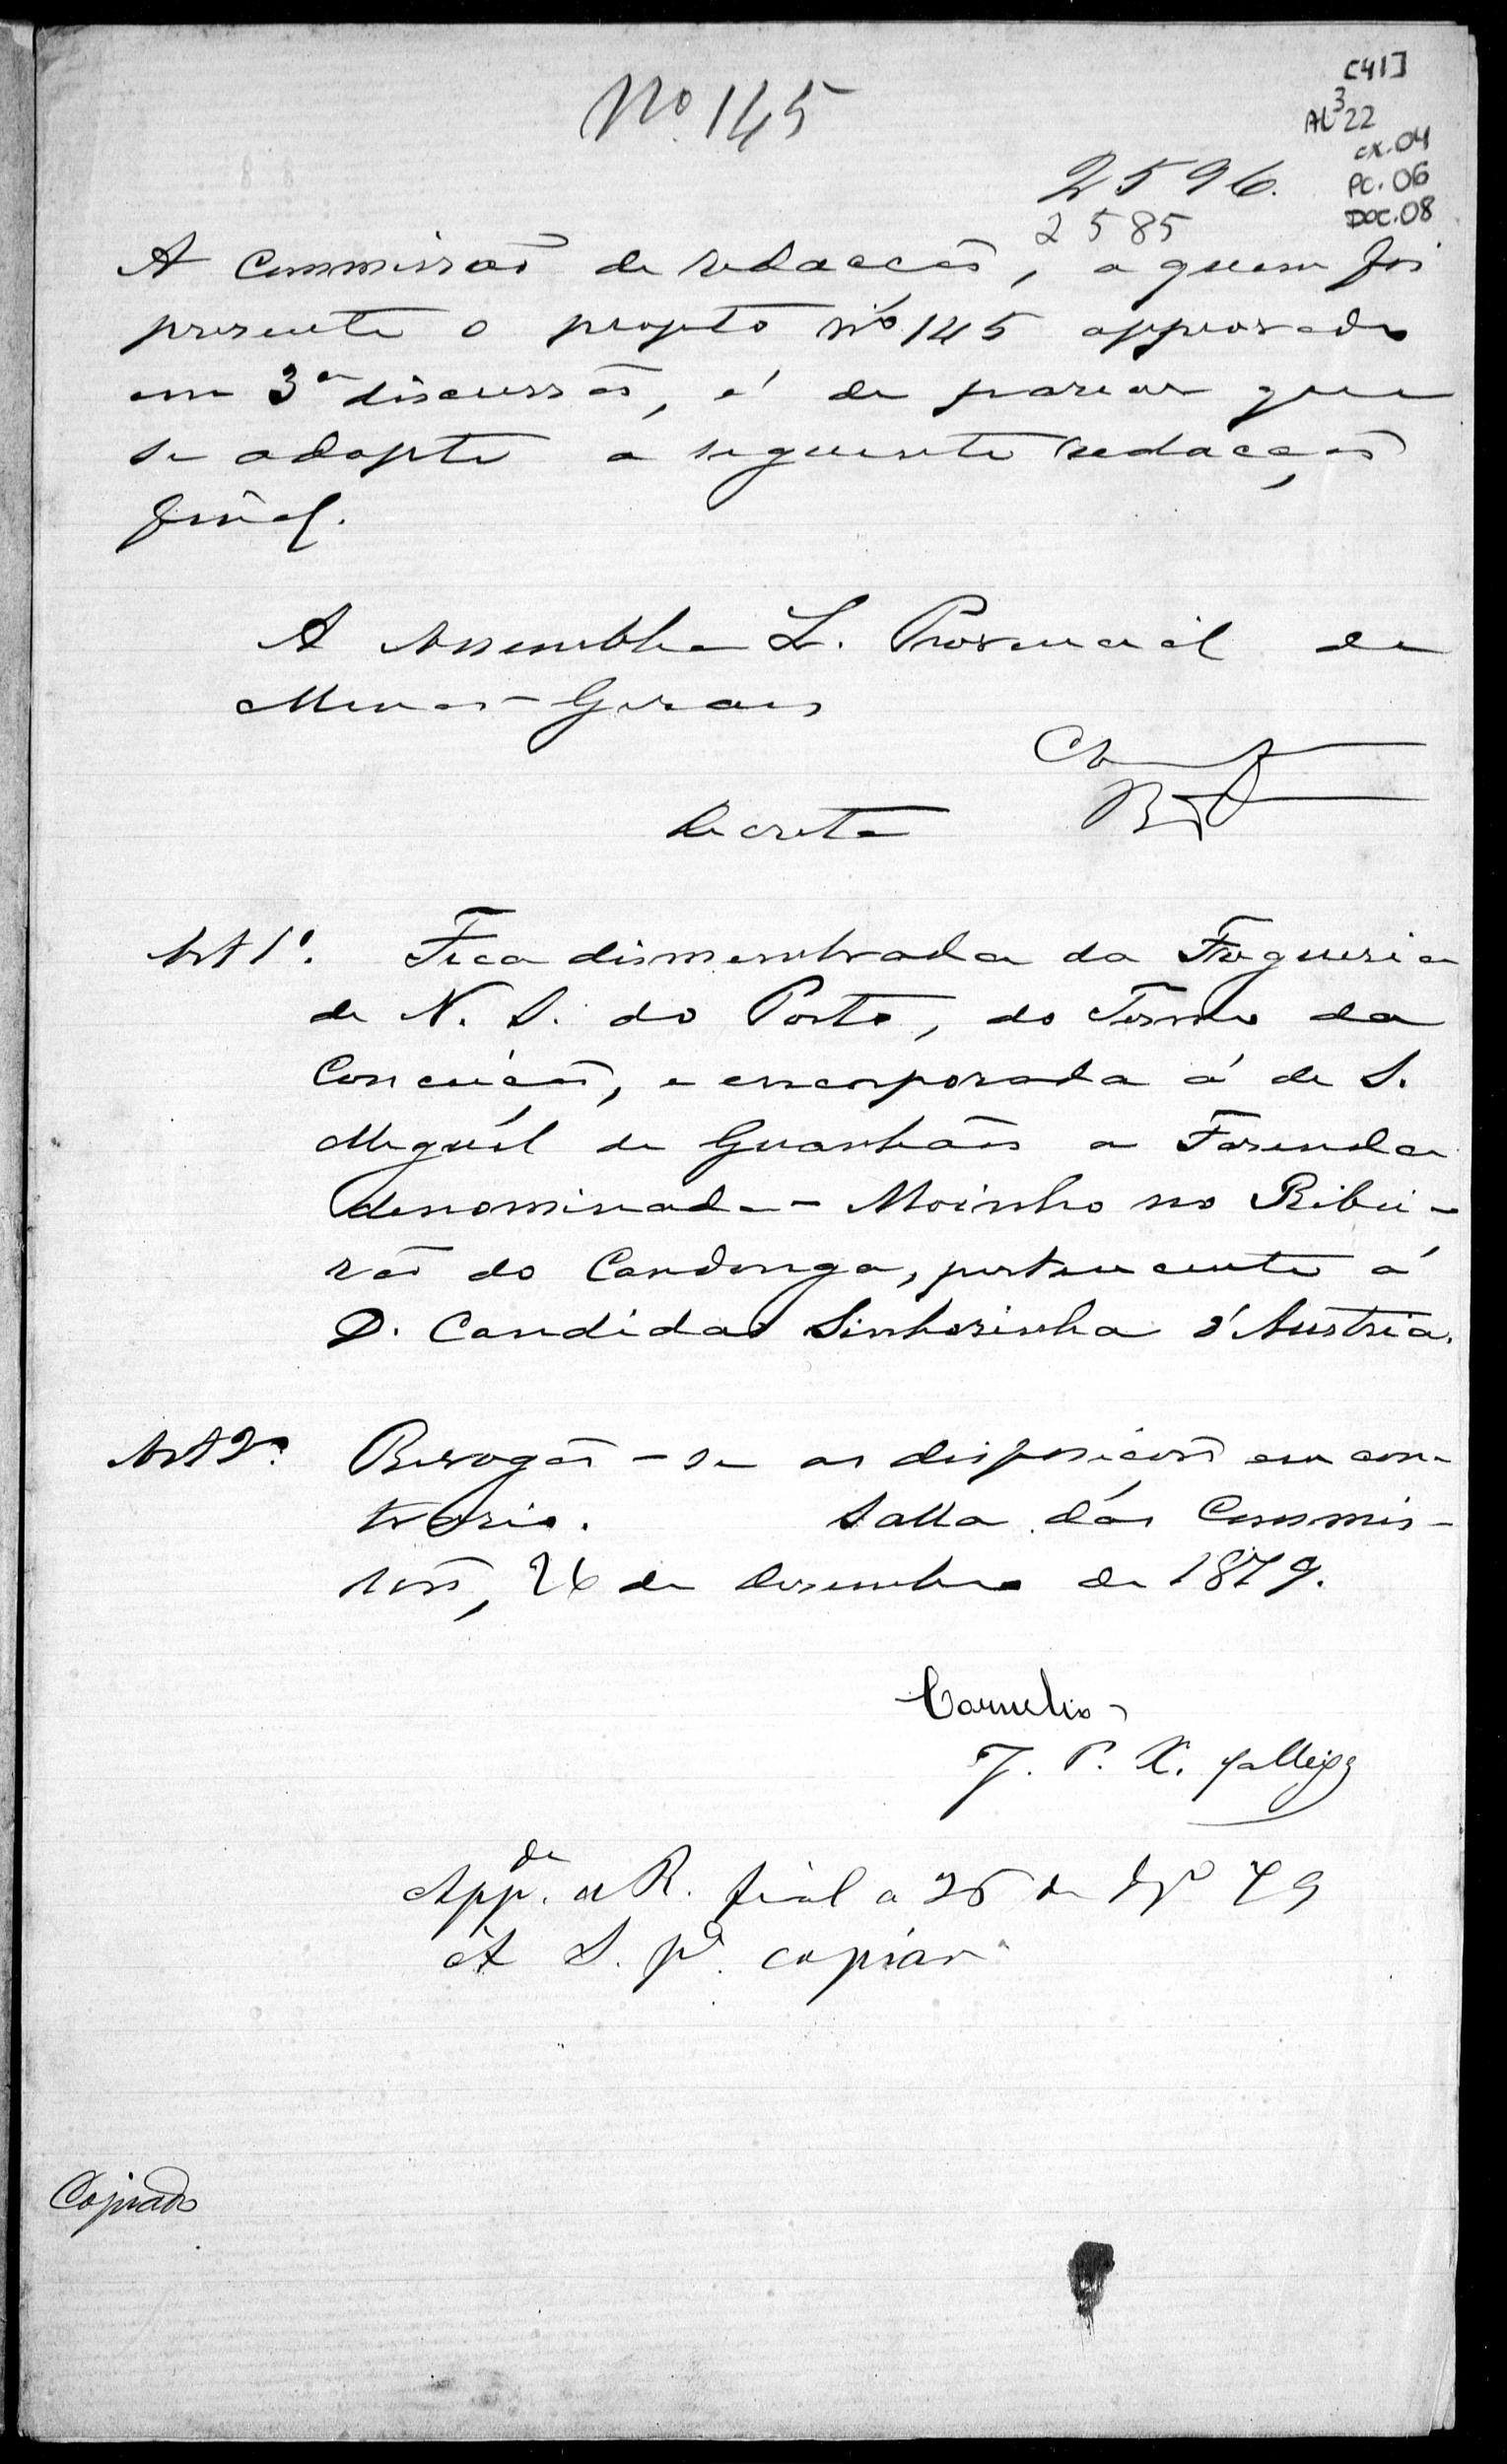 [41]
AL3 22
cx.04
PC.06
DOC.08
Nº 145
2596.
2585
A Commissão de redacção, a quem foi
presente o projecto nº 145 approvado
em 3ª discussão, é de parecer que
se adopte a seguinte redacção
final.
A Assemblea L. Provincial de
Minas-Geraes
Decreta
Art 1º. Fica dismembrada da Freguesia
de N. S. do Porto, do Termo da
Conceição, e encorporada á de S.
Miguél de Guanhães a Fazenda
denominada - Moinho no Ribei-
rão do Candonga, pertencente á
D. Candida Sinhorinha d'Austria.
Art 2º. Revogão-se as disposições em con-
trario. Salla das Commis-
sões, 26 de Dezembro de 1879.
Cornelio
J. P. X. da Veiga
Appda. a R. final a 26 de Dzº 79
A S. pª. copiar
Copiado